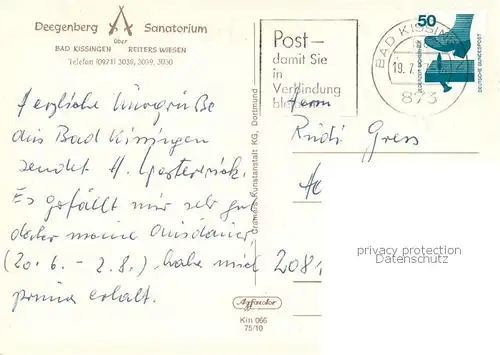 Deegenberg Sanatorium
über
BAD KISSINGEN REITERS WIESEN
Telefon (0971) 3038, 3039, 3030
Post –
damit Sie
in
Verbindung
bleiben
50
DEUTSCHE BUNDESPOST
BAD KISSINGEN
19.7.
873
Herzliche
aus Bad Kissingen
sendet H.
Es gefällt mir sehr gut
(20.6. – 2.8.), habe mich
prima erholt.
Herrn
Rudi Gress
2081
privacy protection
Datenschutz
Cramers Kunstanstalt KG, Dortmund
Agfacolor
Kin 066
75/10